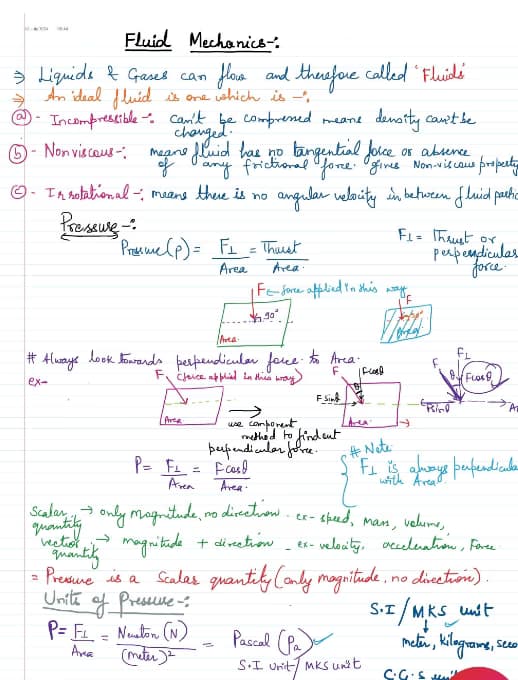 Fluid Mechanics-:
⇒ Liquids & Gases can flow and therefore called 'Fluids'
⇒ An ideal fluid is one which is -:
(a)- Incompressible-: can't be compressed means density can't be changed.
(b)- Nonviscous-: means fluid has no tangential force or absence
of any frictional force. gives Non-viscous property
(c)- Irrotational-: means there is no angular velocity in between fluid partic
Pressure-:
Pressure(P) = F⊥/Area = Thrust/Area.
F⊥ = Thrust or
perpendicular
force.
F ← force applied in this way
90°
Area
F
90°
Area
# Always look towards perpendicular force to Area.
ex-
F (force applied in this way)
Area
→ use component
method to find out
perpendicular force.
F
Fcosθ
θ
F sinθ
Area
F⊥
F
θ
Fcosθ
Fsinθ
P = F⊥/Area = Fcosθ/Area.
# Note
F⊥ is always perpendicular
with Area
Scalar quantity → only magnitude, no direction. ex- speed, mass, volume,
vector quantity → magnitude + direction - ex- velocity, acceleration, Force
= Pressure is a Scalar quantity (only magnitude, no direction).
Units of Pressure-:
P = F⊥/Area = Newton (N)/(meter)² = Pascal (Pa)
S.I unit/MKS unit
S.I/MKS unit
meter, kilograms, seco
C.G.S unit